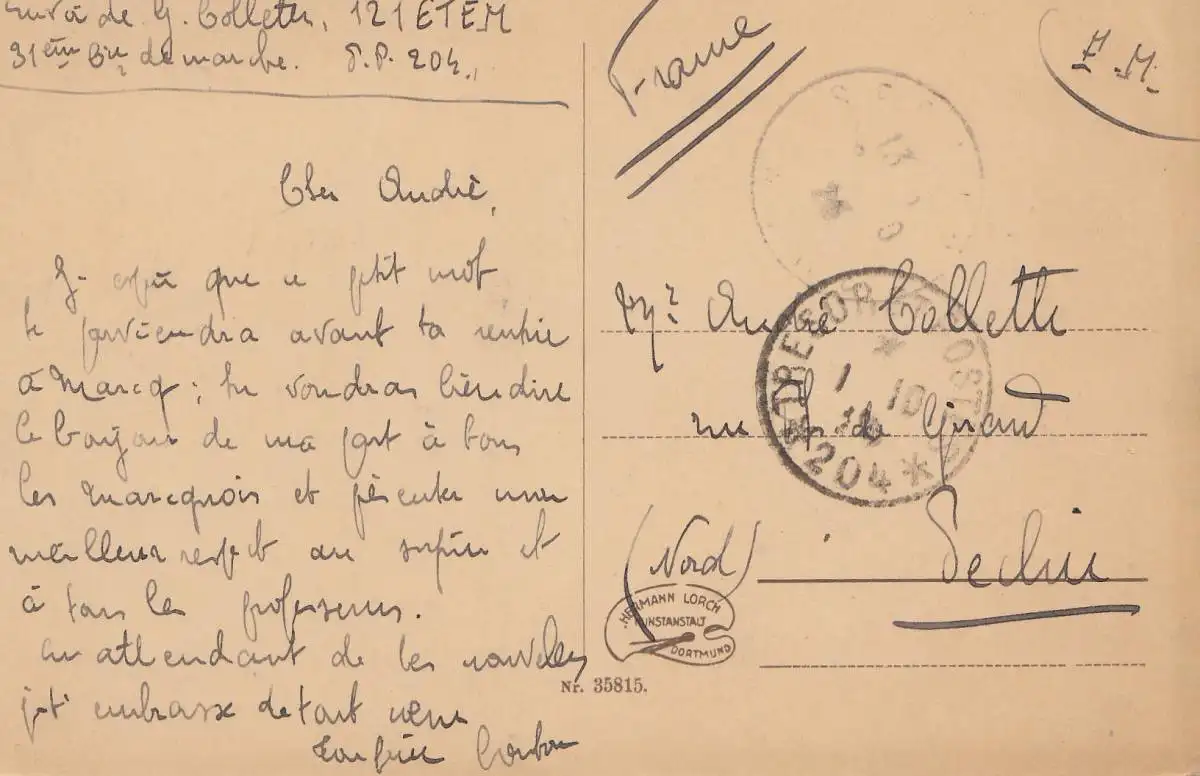 Envoi de G. Collette, 121 ETEM
31ème de marche. S.P. 204.
France
F.M.
Cher André,
J'espère que ce petit mot
te parviendra avant ta rentrée
à Marcq ; tu voudras bien dire
le bonjour de ma part à tous
les Marcquois et présenter mon
meilleur respect au supérieur et
à tous les professeurs.
En attendant de tes nouvelles
je t'embrasse de tout cœur
Ton frère
Mr André Collette
rue de Girard
Seclin
(Nord)
TRESOR ET POSTES
1 10
* 204 *
13
HERMANN LORCH
KUNSTANSTALT
DORTMUND
Nr. 35815.